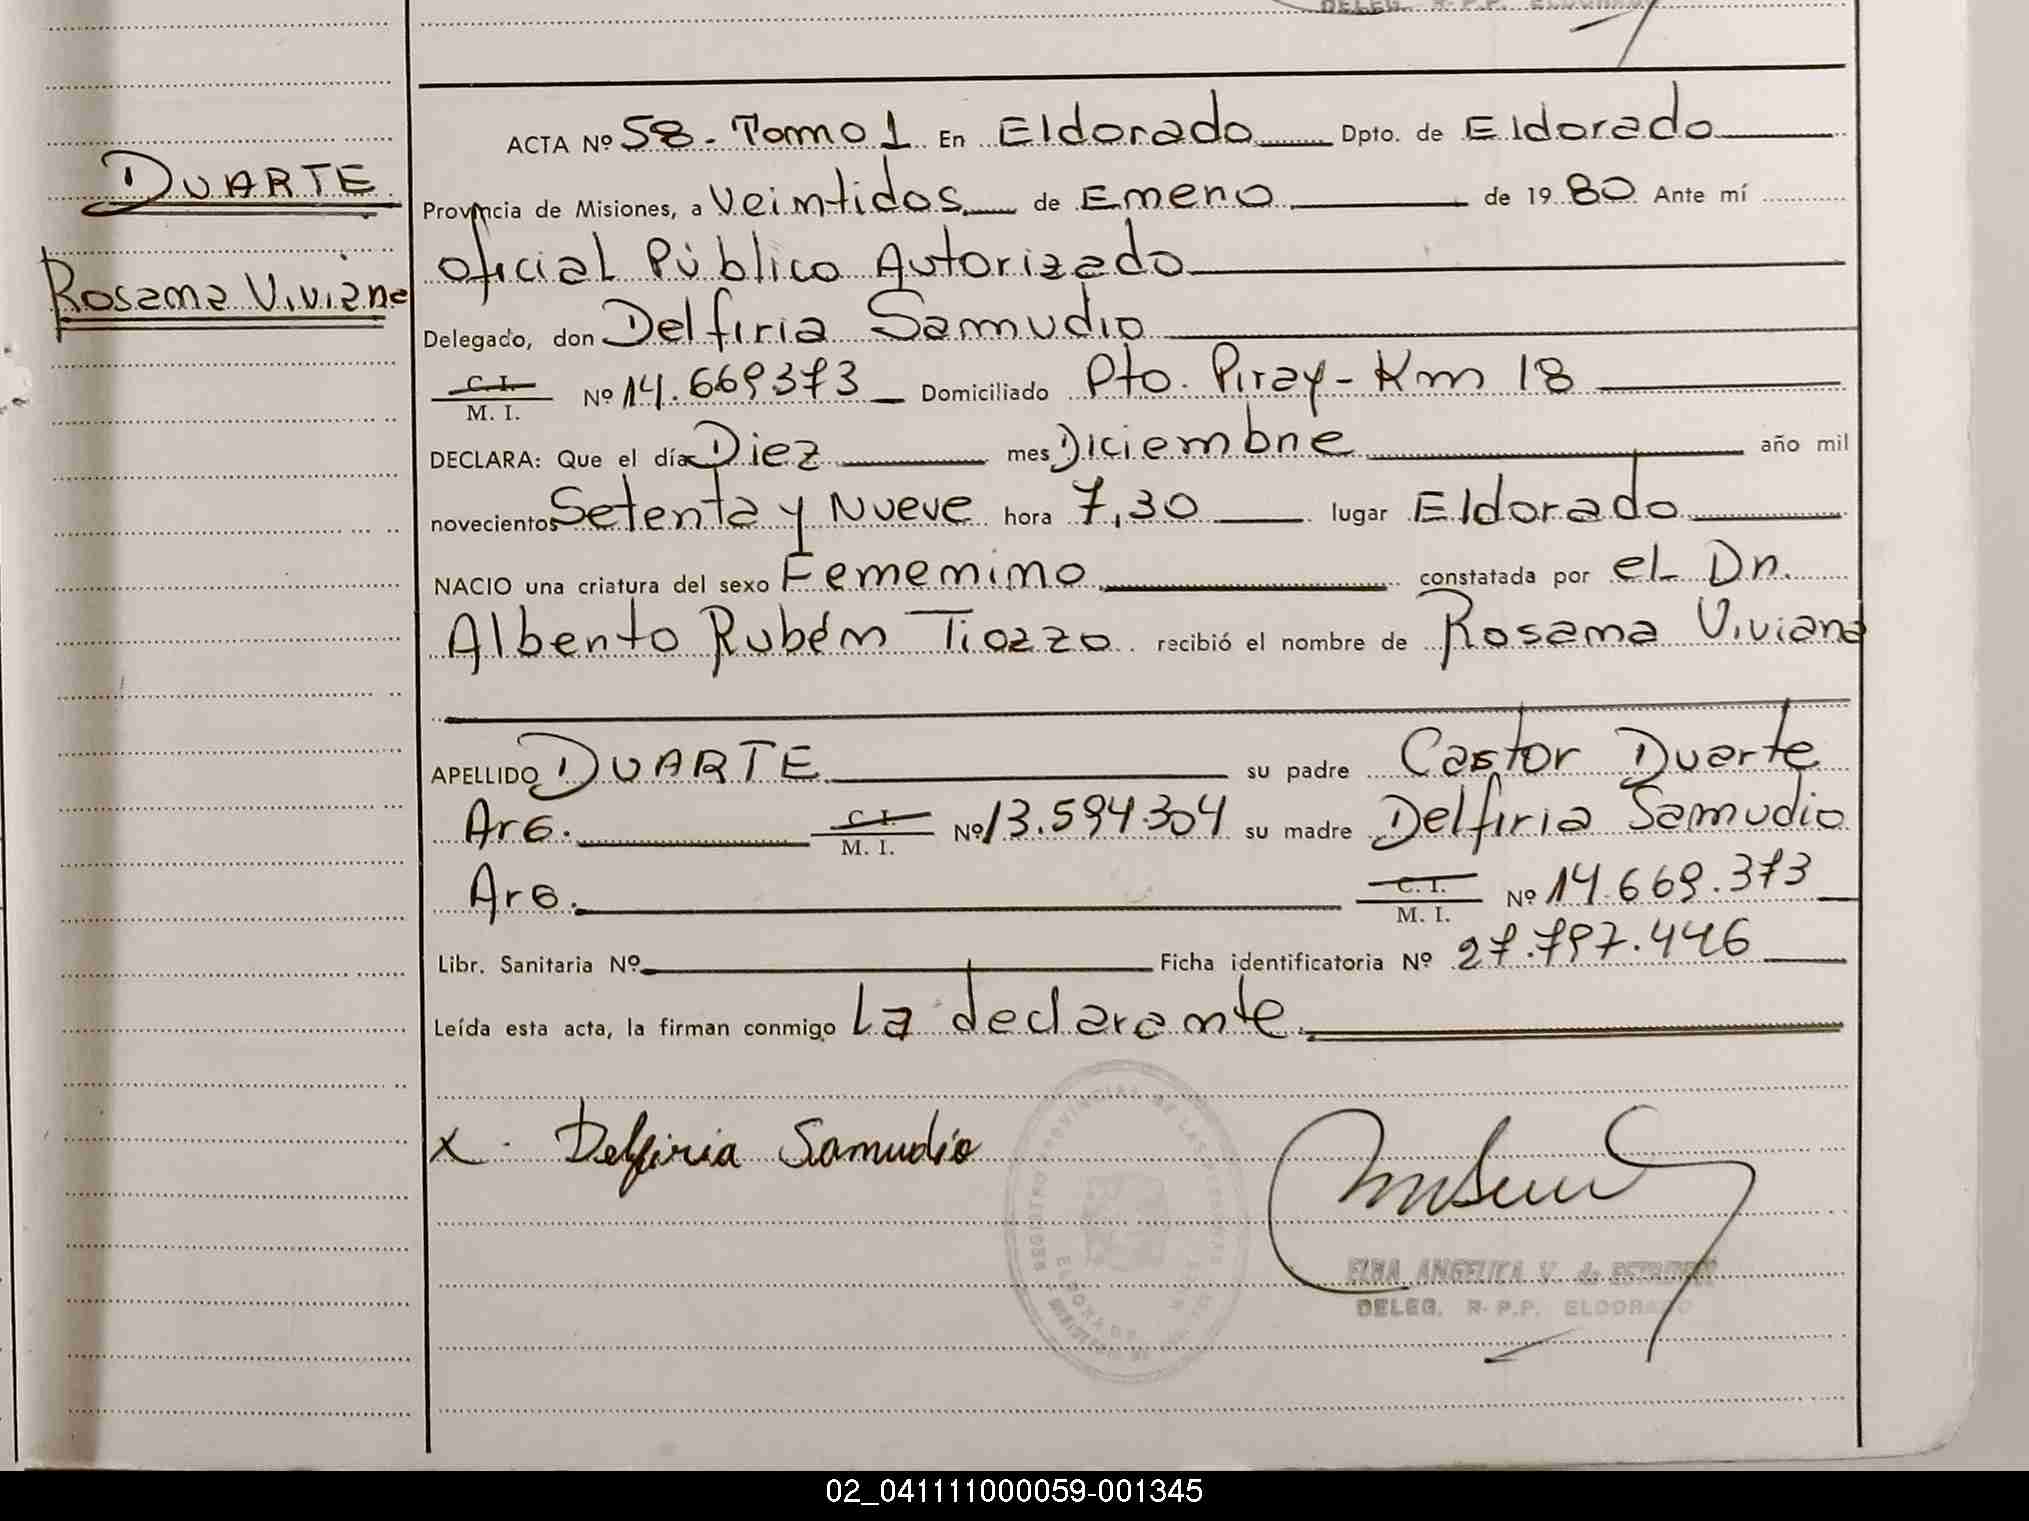 DELEG. R.P.P. ELDORADO
DUARTE
Rosana Viviana
ACTA Nº 58. Tomo 1 En Eldorado Dpto. de Eldorado
Provincia de Misiones, a Veintidos de Enero de 19 80 Ante mí
Oficial Público Autorizado
Delegado, don Delfiria Samudio
C. I. / M. I. Nº 14.669373 Domiciliado Pto. Piray - Km 18
DECLARA: Que el día Diez mes Diciembre año mil
novecientos Setenta y Nueve hora 7,30 lugar Eldorado
NACIO una criatura del sexo Femenino constatada por el Dr.
Alberto Rubén Tiozzo recibió el nombre de Rosana Viviana
APELLIDO DUARTE su padre Castor Duarte
Arg. C. I. / M. I. Nº 13.594.304 su madre Delfiria Samudio
Arg. C. I. / M. I. Nº 14.669.373
Libr. Sanitaria Nº Ficha identificatoria Nº 27.797.446
Leída esta acta, la firman conmigo La declarante
X. Delfiria Samudio
REGISTRO PROVINCIAL DE LAS PERSONAS
ELDORADO
ELBA ANGELICA V. de
DELEG. R.P.P. ELDORADO
02_041111000059-001345